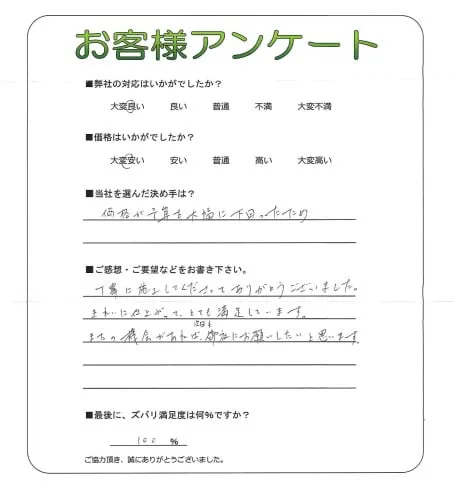 お客様アンケート
■弊社の対応はいかがでしたか？
大変良い 良い 普通 不満 大変不満
■価格はいかがでしたか？
大変安い 安い 普通 高い 大変高い
■当社を選んだ決め手は？
価格が予算を大幅に下回ったため
■ご感想・ご要望などをお書き下さい。
丁寧に施工してくださってありがとうございました。
きれいに仕上がって、とても満足しています。
またの機会があれば、御社にお願いしたいと思います。
■最後に、ズバリ満足度は何%ですか？
100 %
ご協力頂き、誠にありがとうございました。